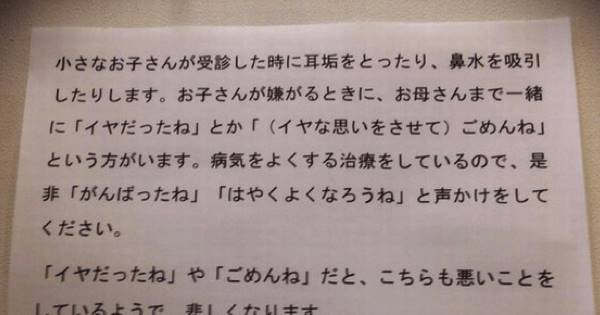 小さなお子さんが受診した時に耳垢をとったり、鼻水を吸引
したりします。お子さんが嫌がるときに、お母さんまで一緒
に「イヤだったね」とか「（イヤな思いをさせて）ごめんね」
という方がいます。病気をよくする治療をしているので、是
非「がんばったね」「はやくよくなろうね」と声かけをして
ください。
「イヤだったね」や「ごめんね」だと、こちらも悪いことを
しているようで、悲しくなります。